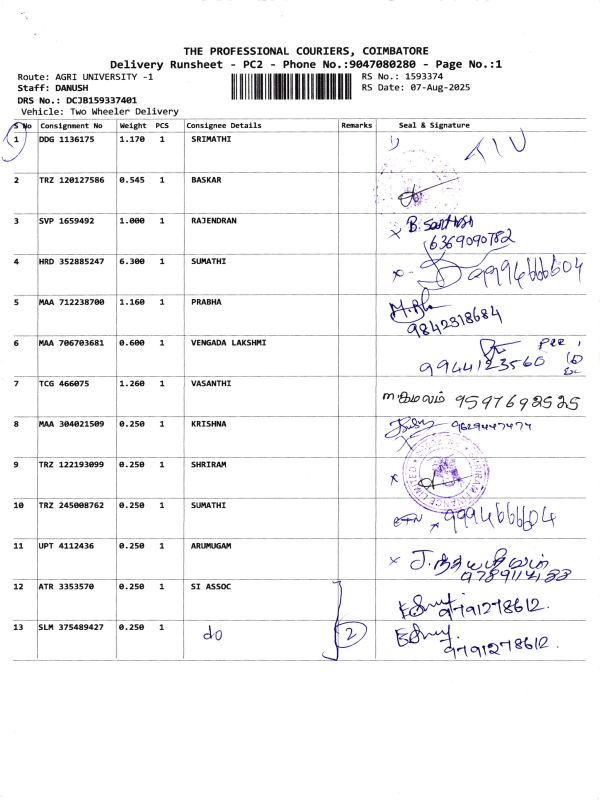 THE PROFESSIONAL COURIERS, COIMBATORE
Delivery Runsheet - PC2 - Phone No.:9047080280 - Page No.:1
Route: AGRI UNIVERSITY -1 RS No.: 1593374
Staff: DANUSH RS Date: 07-Aug-2025
DRS No.: DCJB159337401
Vehicle: Two Wheeler Delivery
S No Consignment No Weight PCS Consignee Details Remarks Seal & Signature
1 DDG 1136175 1.170 1 SRIMATHI
2 TRZ 120127586 0.545 1 BASKAR
3 SVP 1659492 1.000 1 RAJENDRAN B. Santhosh
6369090782
4 HRD 352885247 6.300 1 SUMATHI 9994666604
5 MAA 712238700 1.160 1 PRABHA
9842318684
6 MAA 706703681 0.600 1 VENGADA LAKSHMI
9944123560
7 TCG 466075 1.260 1 VASANTHI 9597692525
8 MAA 304021509 0.250 1 KRISHNA 9629447477
9 TRZ 122193099 0.250 1 SHRIRAM
10 TRZ 245008762 0.250 1 SUMATHI 9994666604
11 UPT 4112436 0.250 1 ARUMUGAM
12 ATR 3353570 0.250 1 SI ASSOC 9791278612.
13 SLM 375489427 0.250 1 do 2 9791278612.